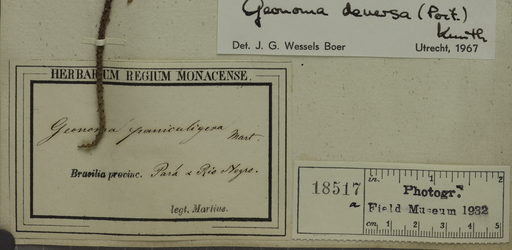 Geonoma deversa (Poit.)
Kunth
Det. J. G. Wessels Boer Utrecht, 1967
HERBARIUM REGIUM MONACENSE.
Geonoma paniculigera Mart.
Brasilia provinc. Pará & Rio Negro.
legt. Martius.
18517
a
in. 1 2
Photogr.
Field Museum 1932
cm 1 2 3 4 5